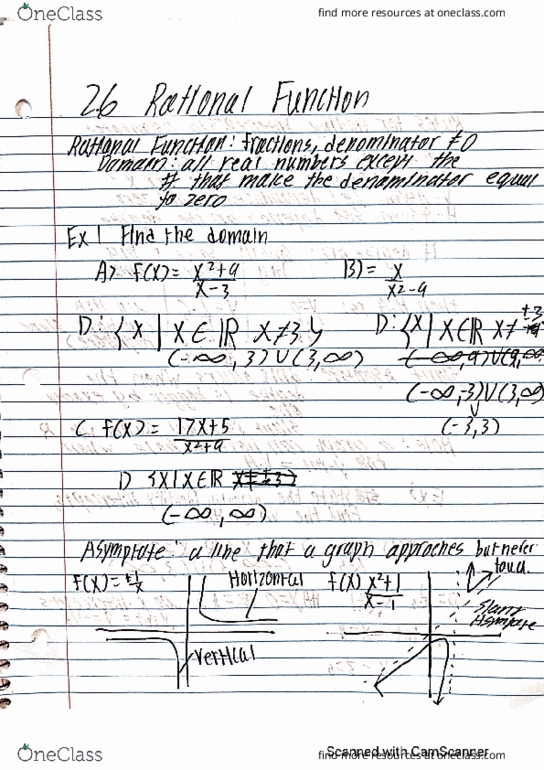 OneClass
find more resources at oneclass.com
2.6 Rational Function
Rational Function: fractions, denominator ≠0
Domain: all real numbers except the
# that make the denominator equal
to zero
Ex 1 Find the domain
A) f(x) = x²+9 / x-3
B) = x / x²-9
D: {x | x∈ℝ x≠3}
(-∞, 3)∪(3,∞)
D: {x | x∈ℝ x≠ ±3
(-∞,9)∪(9,∞)
(-∞,-3)∪(3,∞)
∪
(-3,3)
C. f(x) = 17x+5 / x²+9
D {x | x∈ℝ x≠±3}
(-∞, ∞)
Asymptote: a line that a graph approaches but never
touch.
f(x) = 1/x
Horizontal
vertical
f(x) x²+1 / x-1
Slant
Asymptote
Scanned with CamScanner
OneClass
find more resources at oneclass.com